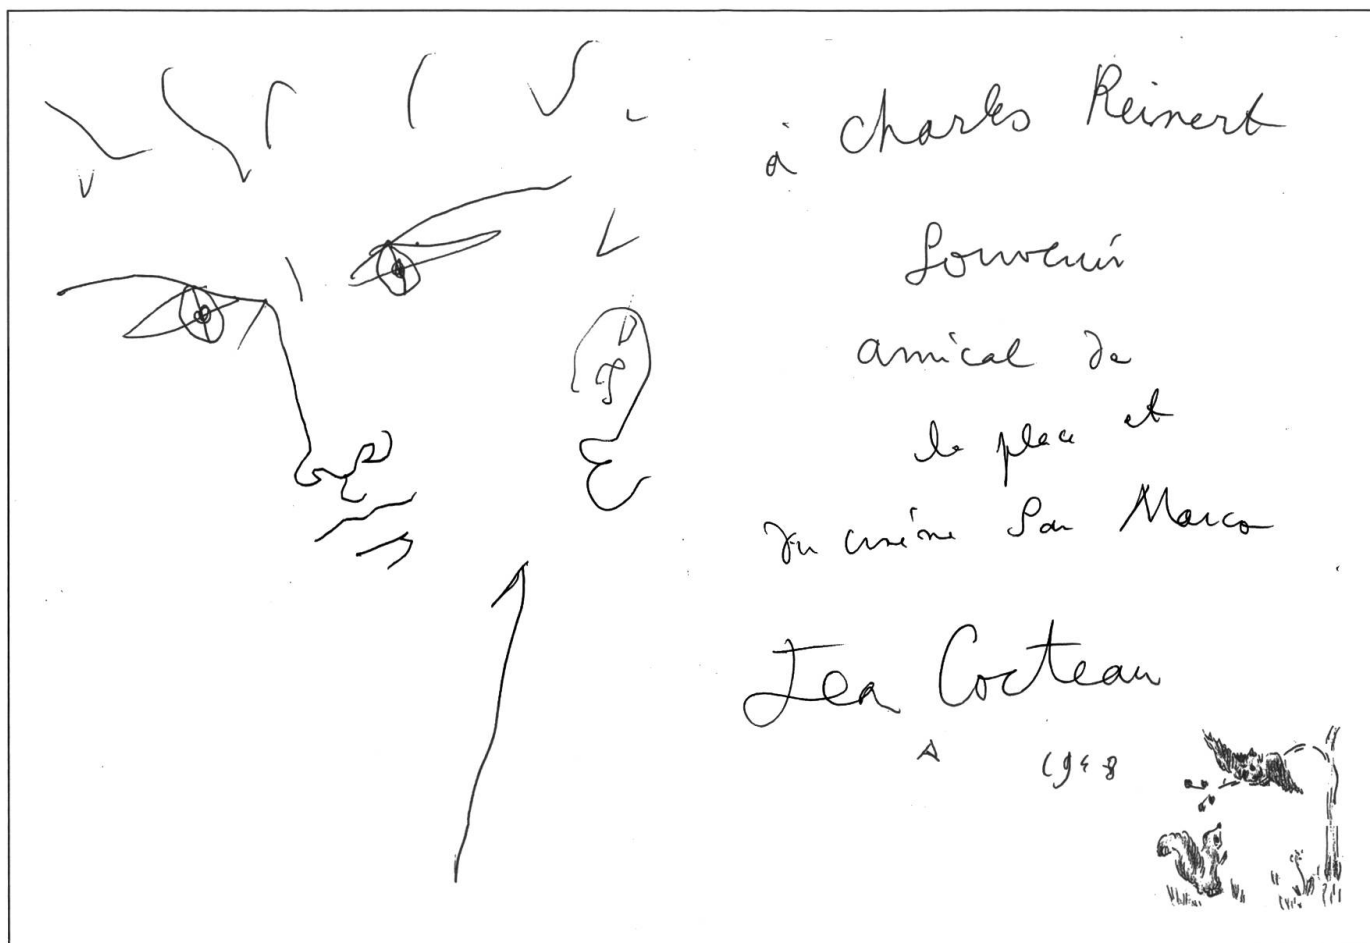 à Charles Reinert
Souvenir
amical de
la place et
du cinéma San Marco
Jean Cocteau
1948